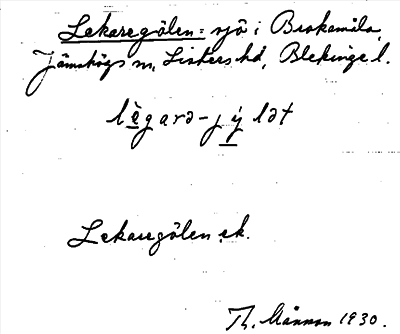 Lekaregölen: sjö i Brokamåla,
Jämshögs sn, Listers hd, Blekinge l.
lègarə-jýlət
Lekaregölen ek.
Th. 1930.